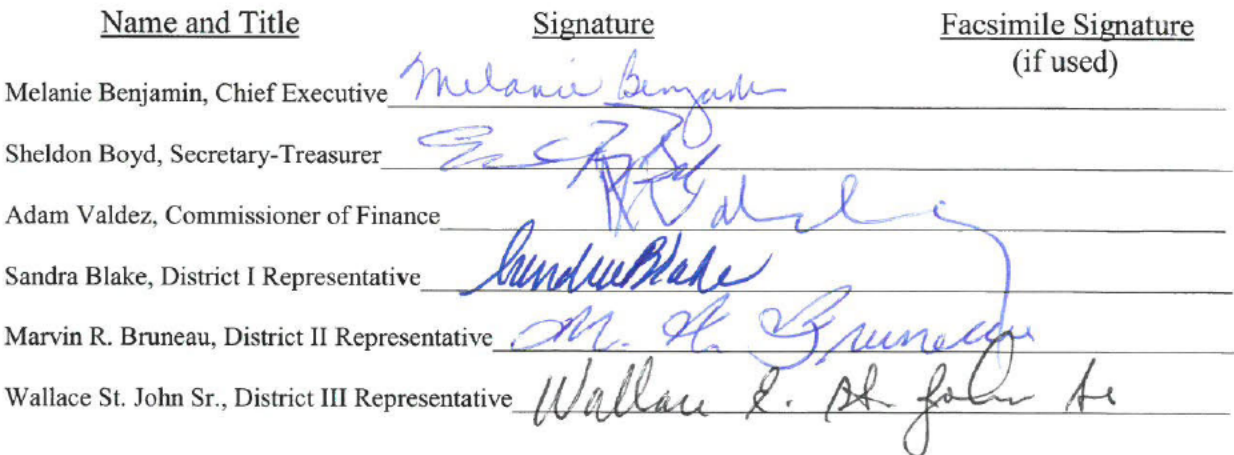 Name and Title Signature Facsimile Signature
(if used)
Melanie Benjamin, Chief Executive Melanie Benjamin
Sheldon Boyd, Secretary-Treasurer
Adam Valdez, Commissioner of Finance
Sandra Blake, District I Representative Sandra Blake
Marvin R. Bruneau, District II Representative M. R. Bruneau
Wallace St. John Sr., District III Representative Wallace E. St. John Sr